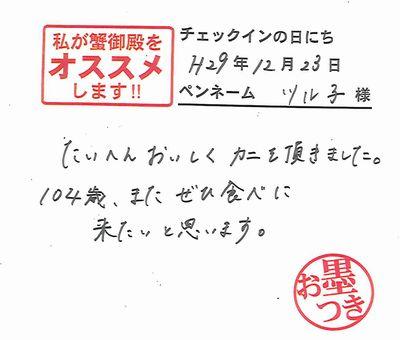 私が蟹御殿を
オススメ
します!!
チェックインの日にち
H29年12月23日
ペンネーム ツル子 様
たいへんおいしくカニを頂きました。
104歳、またぜひ食べに
来たいと思います。
お墨つき